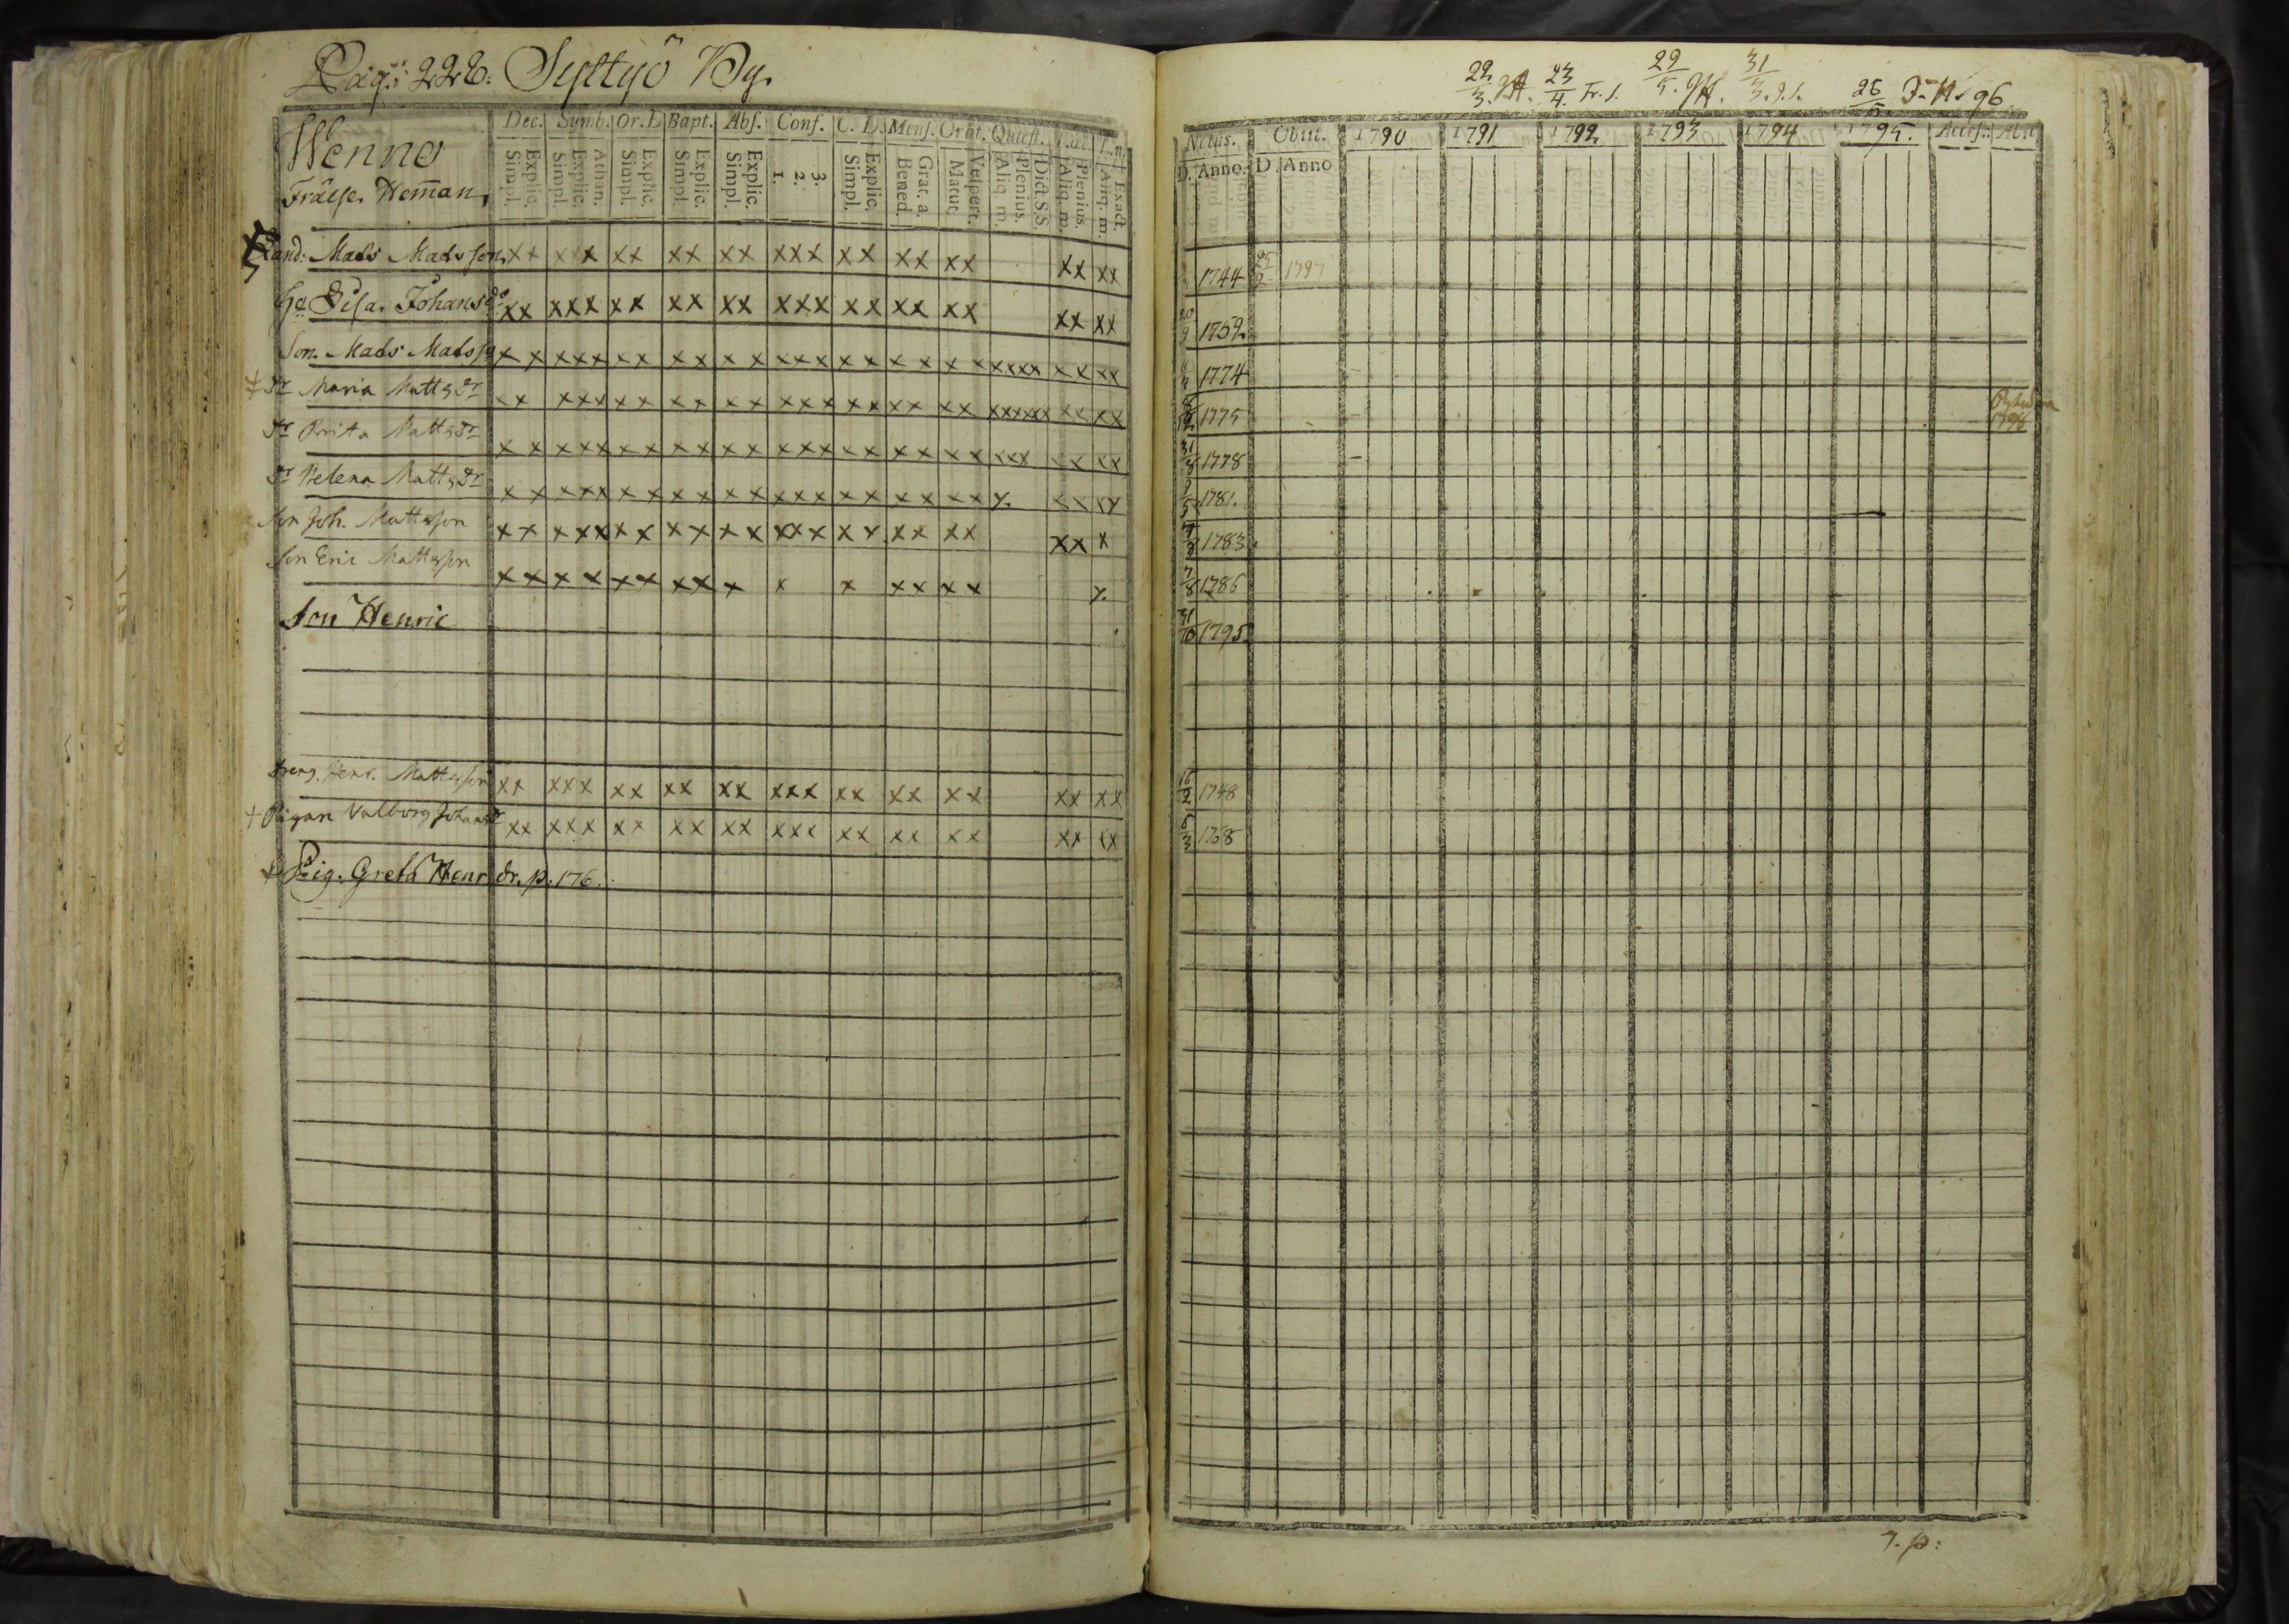 Pag: 228. Syttyö By.
Wenno
Frälse Heman,
Dec. Symb. Or. D Bapt. Abs. Conf. C. D. Mens. Orat. Quaest.
Explic. Simpl. Athan. Explic. Simpl. Explic. Simpl. Explic. Simpl. Explic. Simpl. 3. 2. 1. Explic. Simpl. Grat. a. Bened. Vespert. Matut. Dict. S.S. Plenius. Aliq. m. Plenius. Aliq. m. Exact. Aliq. m.
Land: Mats Matsson xx xxx xx xx xx xxx xx xx xx xx xx
Hu Lisa Johansdr xx xxx xx xx xx xxx xx xx xx xx xx
Son. Mats Matss xx xxx xx xx xx xxx xx xx xx xxxxx xx xx
Dr Maria Mattsdr xx xxx xx xx xx xxx xx xx xx xxxxxx xx xx
Dr Brita Mattsdr xx xxx xx xx xx xxx xx xx xx xxx xx xx
Dr Helena Mattsdr xx xxx xx xx xx xxx xx xx xx x xx xx
Son Joh. Mattsson xx xxx xx xx xx xxx xx xx xx xx x
Son Eric Mattsson xx xx xx xx x x x xx xx x
Son Henric
Dreng. Henr. Mattsson xx xxx xx xx xx xxx xx xx xx xx xx
Pigan Valborg Johansdr xx xxx xx xx xx xxx xx xx xx xx xx
Pig. Greta Henr dr. p. 176.
22/3. 23/4. Fr. S. 29/5. 31/3. J. S. 26/5 J. H. 96
Natus. Obiit. 1790 1791 1792 1793 1794 1795. Access. Abit
D. Anno. D. Anno
1744 25/2 1797
20/9 1752
1774
1775 1798
31/8 1778
1781.
1783
7/8 1786
31/10 1795
16/2 1748
8/3 1768
7. p: